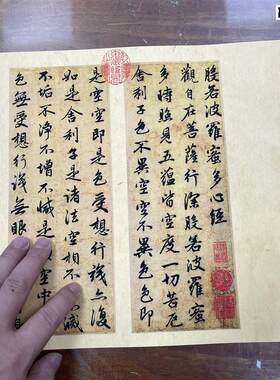 般若波羅蜜多心經
觀自在菩薩行深般若波羅蜜
多時照見五蘊皆空度一切苦厄
舍利子色不異空空不異色色即
是空空即是色受想行識亦復
如是舍利子是諸法空相不滅
不垢不淨不增不減是空中
色無受想行識無眼